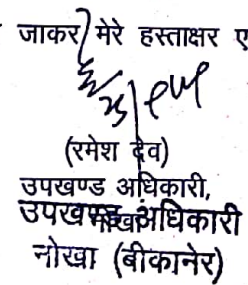 जाकर मेरे हस्ताक्षर ए
(रमेश देव)
उपखण्ड अधिकारी,
उपखण्ड अधिकारी
नोखा (बीकानेर)